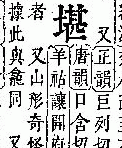 又正韻巨列切
堪
唐韻口含切
羊祜讓開府
者又山形奇怪
據此與龕同又